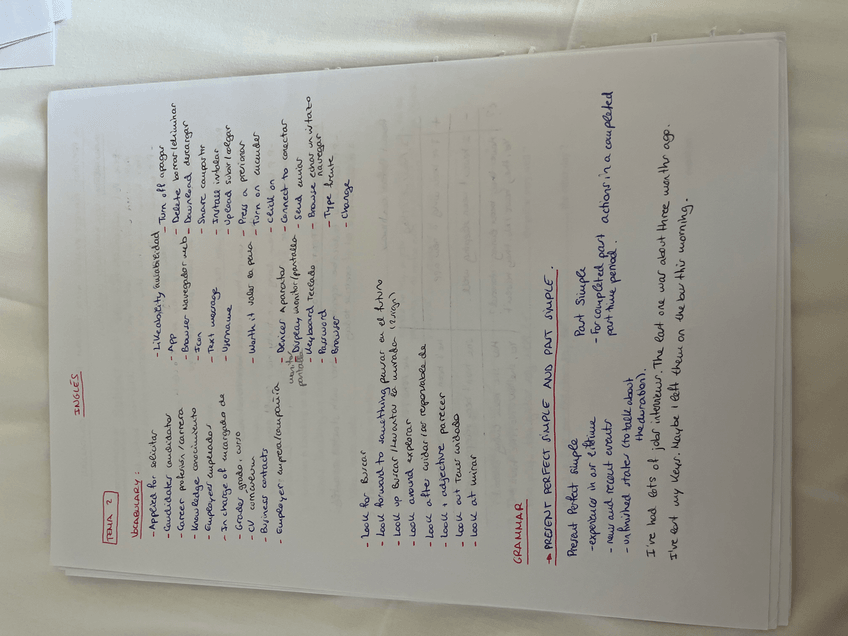 INGLÉS
TEMA 2
VOCABULARY:
- Applied for solicitar
- Candidates candidatos
- Career profesión/carrera
- Knowledge conocimiento
- Employees empleados
- In charge of encargado de
- Grades grado, curso
- CV
- Business contacts
- Employer empresa/compañía
- Likeability
- App
- Browser Navegador web
- Icon
- Text message
- Username
- Worth it valer la pena
- Devices Aparatos
- Display monitor/pantalla
- Keyboard Teclado
- Password
- Browser
- Turn off apagar
- Delete borrar/eliminar
- Download descargar
- Share compartir
- Install instalar
- Upload subir/colgar
- Press a presionar
- Turn on encender
- Click on
- Connect to conectar
- Send enviar
- Browse echar un vistazo
navegar
- Type
- Change
- Look for Buscar
- Look forward to something pensar en el futuro
- Look up Buscar/Levantar la mirada
- Look around explorar
- Look after cuidar/ser responsable de
- Look + adjective parecer
- Look out Tener cuidado
- Look at mirar
GRAMMAR
→ PRESENT PERFECT SIMPLE AND PAST SIMPLE.
Present Perfect Simple
- experiences in our lifetime
- new and recent events
- unfinished states (to talk about
the duration).
Past Simple
- For completed past actions in a completed
past time period.
I've had lots of job interviews. The last one was about three months ago.
I've lost my keys. Maybe I left them on the bus this morning.